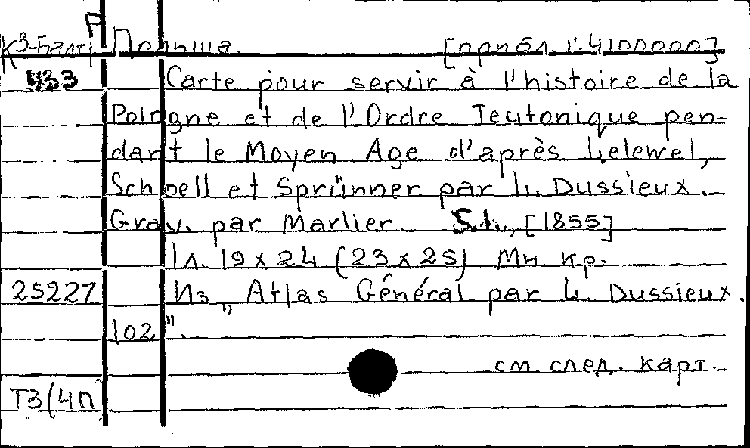 Р
К3-Балт Польша. [прибл. 1:4100000]
433 Carte pour servir à l'histoire de la
Pologne et de l'Ordre Teutonique pen-
dant le Moyen Age d'après Lelewel,
Schoell et Sprünner par L. Dussieux.
Grav. par Marlier. S.l., [1855]
1л. 19x24 (23x25) Мн кр.
25227 Из „Atlas Général par L. Dussieux.
102".
см. след. карт.
Т3(4П